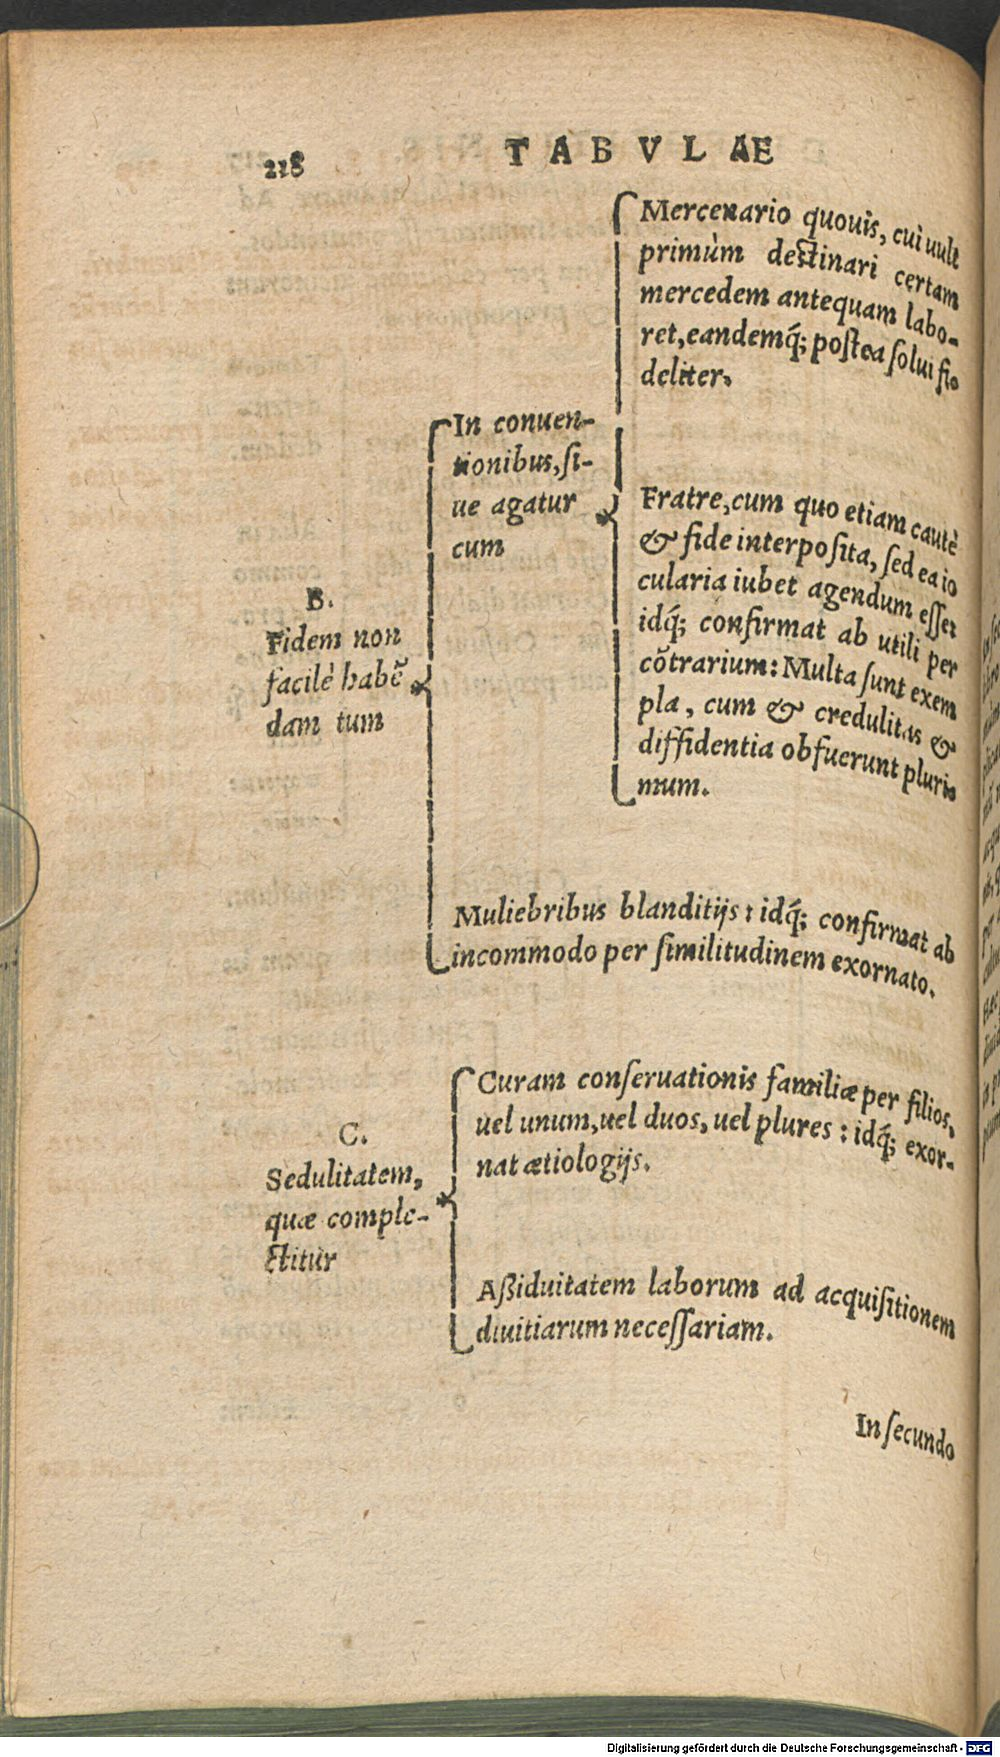 218 TABVLAE
B.
Fidem non
facilè habẽ
dam tum
In conuen-
tionibus, ſi-
ue agatur
cum
Mercenario quouis, cui uult
primùm deſtinari certam
mercedem antequam labo-
ret, eandemq́; poſtea ſolui fi-
deliter.
Fratre, cum quo etiam cautè
& fide interpoſita, ſed ea io
cularia iubet agendum eſſe:
idq́; confirmat ab utili per
cõtrarium: Multa ſunt exem
pla, cum & credulitas &
diffidentia obfuerunt pluri-
mum.
Muliebribus blanditijs: idq́; confirmat ab
incommodo per ſimilitudinem exornato.
C.
Sedulitatem,
quæ comple-
ctitur
Curam conſeruationis familiæ per filios,
uel unum, uel duos, uel plures: idq́; exor-
nat ætiologijs.
Aßiduitatem laborum ad acquiſitionem
diuitiarum neceſſariam.
In ſecundo
Digitalisierung gefördert durch die Deutsche Forschungsgemeinschaft - DFG